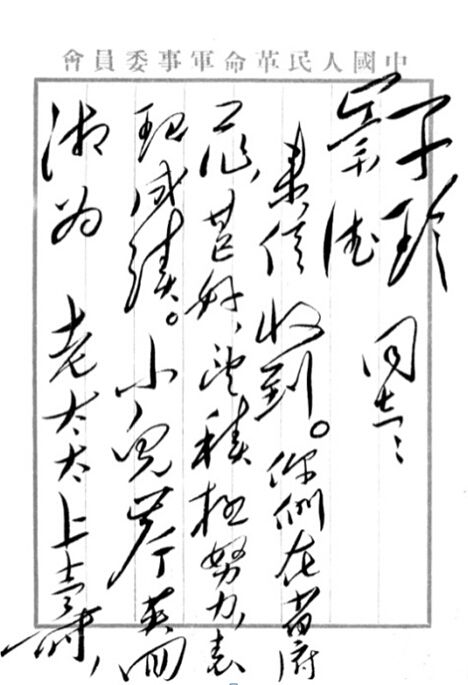 中國人民革命軍事委員會
子珍 同志
崇德
來信收到。你們在省府
工作,甚好,望積極努力,表
現成績。小兒岸英回
湘为 老太太上壽,